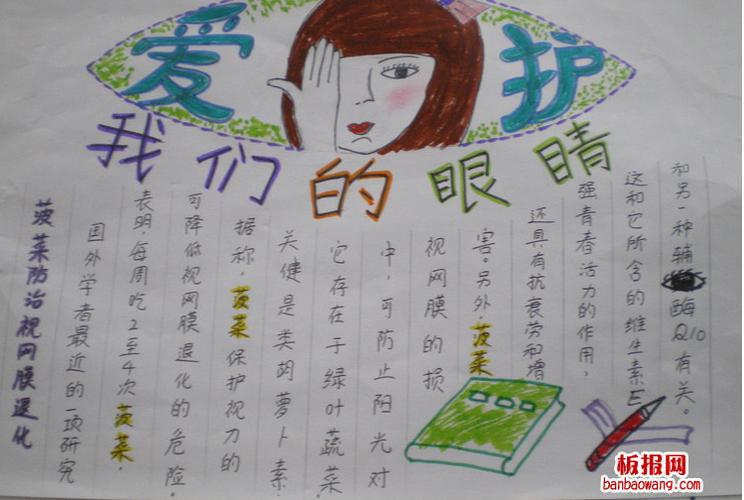 爱护
我们的眼睛
菠菜防治视网膜退化
国外学者最近的一项研究
表明,每周吃2至4次菠菜,
可降低视网膜退化的危险。
据称,菠菜保护视力的
关健是类胡萝卜素,
它存在于绿叶蔬菜
中,可防止阳光对
视网膜的损
害。另外,菠菜
还具有抗衰劳和增
强青春活力的作用,
这和它所含的维生素E
和另一种辅酶Q10有关。
板报网
banbaowang.com